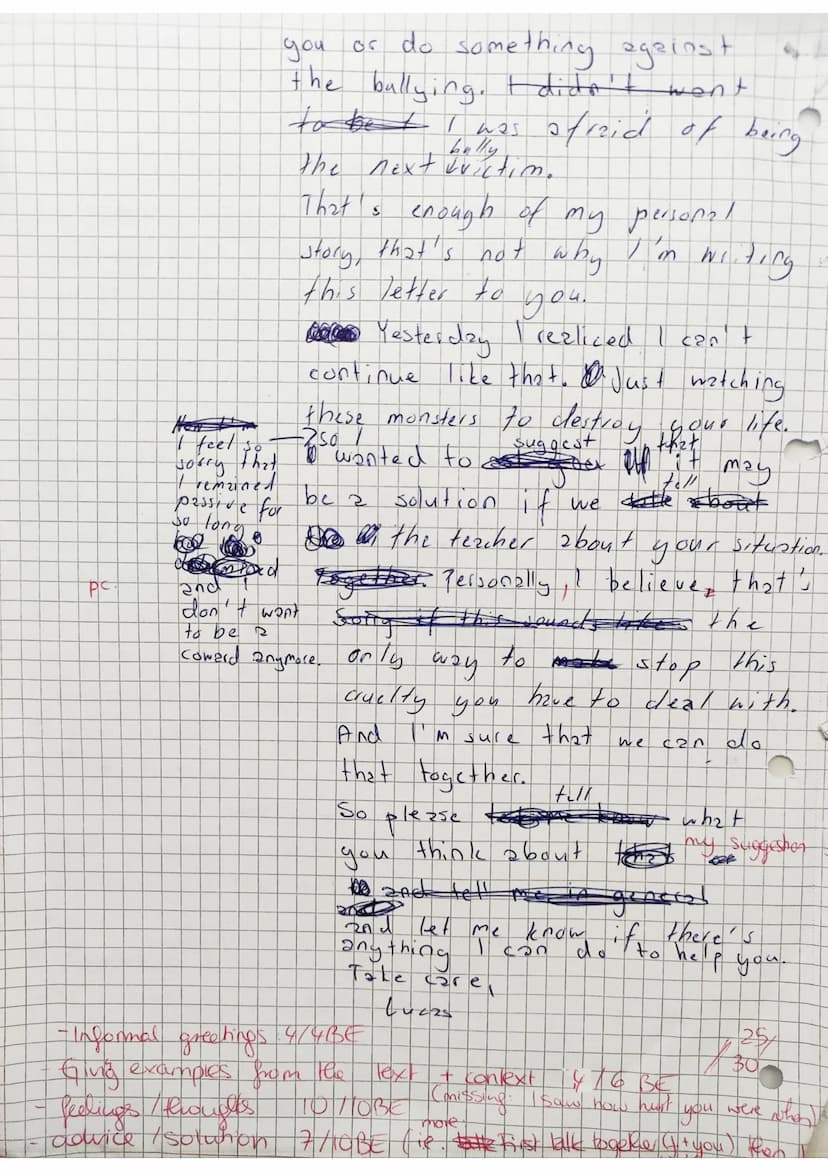 you or do something against
the bullying. I didn't want
to be t I was afraid of being
bully
the next victim.
That's enough of my personal
story, that's not why I'm writing
this letter to you.
Yesterday I realiced I can't
continue like that. Just watching
these monsters to destroy your life.
I feel so
sorry that
I remained
passive for
so long
and I
don't want
to be a
coward anymore.
pc
so I
suggest that
wanted to it may
tell
be a solution if we about
the teacher about your situation.
Together. Personally, I believe, that's
Sorry if this sounds like the
only way to make stop this
cruelty you have to deal with.
And I'm sure that we can do
that together.
tell
So please let me know what
you think about that my suggestion
and tell me in general
and let me know if there's
anything I can do to help you.
Take care,
Lucas
- Informal greetings 4/4BE
25/
30
- Giving examples from the text + context 4/6 BE
(missing: I saw how hurt you were when)
- feelings/thoughts 10/10BE
more
- advice/solution 7/10BE (i.e. First talk together (I + you) then